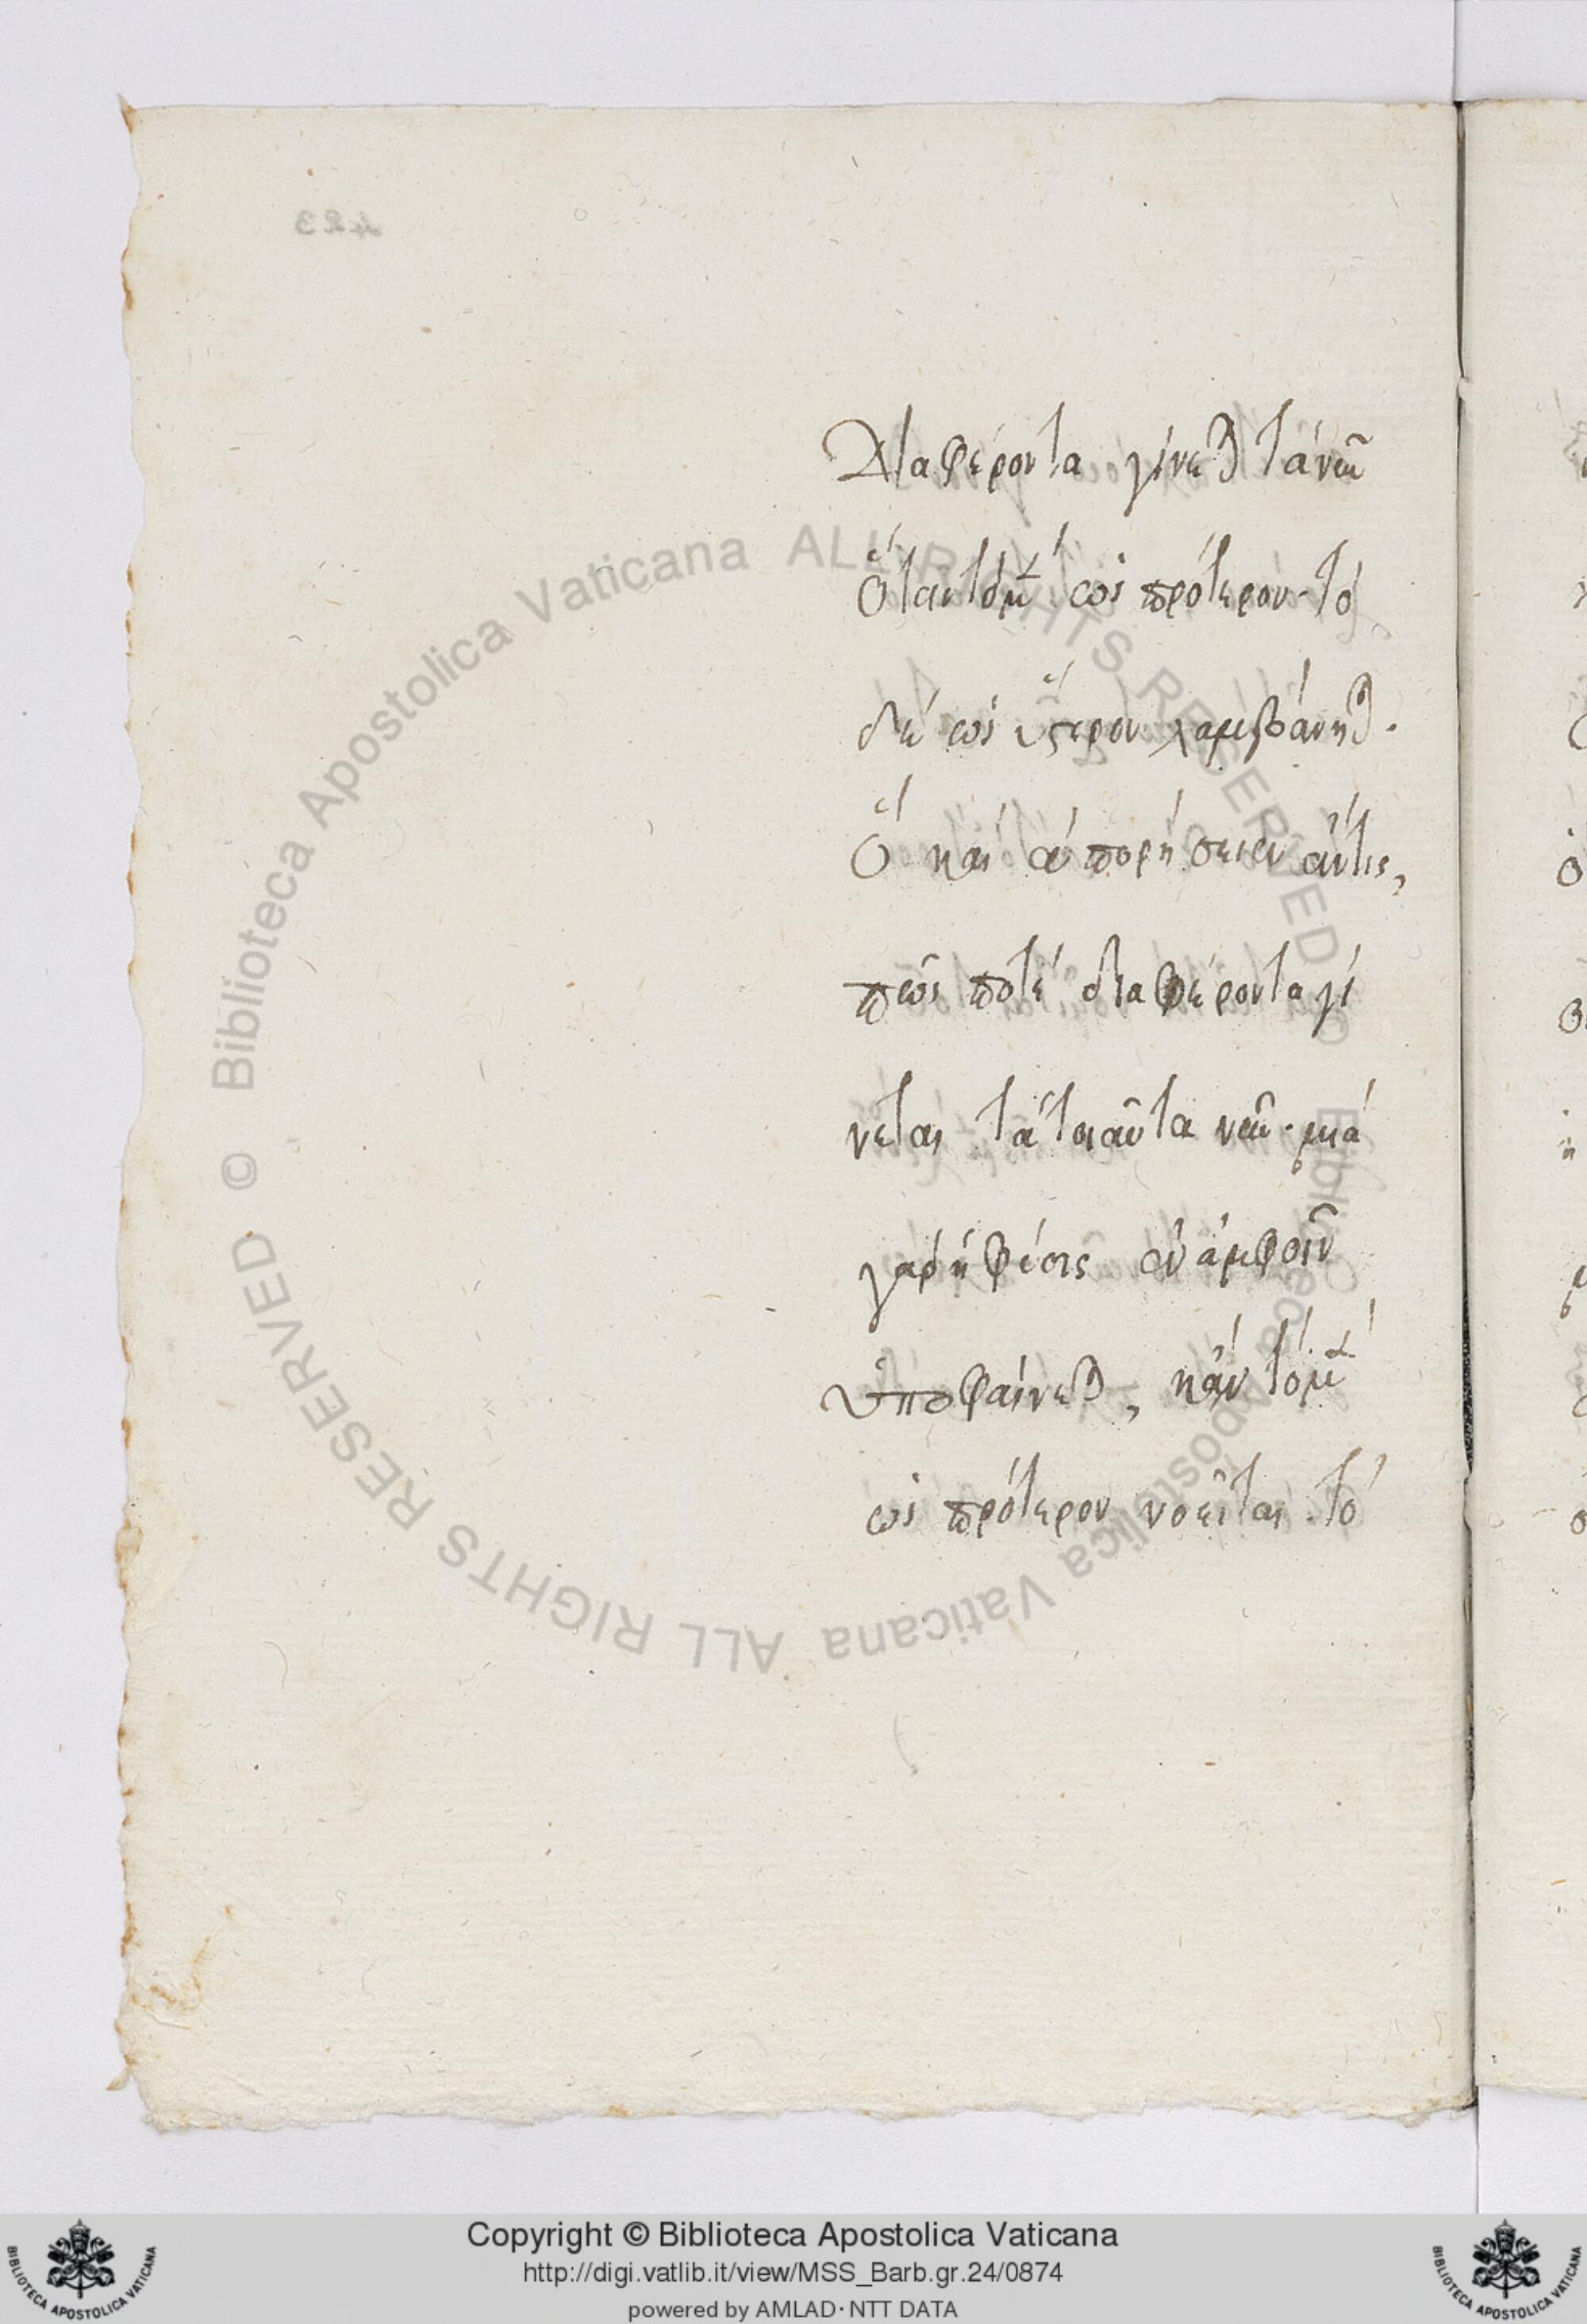 423
Διαφέροντα γίνεται τὰ
ὅταν τὸ μὲν ὡς πρότερον· τὸ
δὲ ὡς ὕστερον λαμβάνηται.
Ὃ καὶ ἀπορήσειεν ἄν τις,
πῶς ποτὲ διαφέροντα γί
νεται τὰ τοιαῦτα μιὰ
γὰρ ἡ θέσις ἐν ἀμφοῖν
ὑποφαίνεται, κἂν τὸ μὲν
ὡς πρότερον νοεῖται· τὸ
Biblioteca Apostolica Vaticana ALL RIGHTS RESERVED ©
Biblioteca Apostolica Vaticana ALL RIGHTS RESERVED ©
Copyright © Biblioteca Apostolica Vaticana
http://digi.vatlib.it/view/MSS_Barb.gr.24/0874
powered by AMLAD·NTT DATA
BIBLIOTECA APOSTOLICA VATICANA
BIBLIOTECA APOSTOLICA VATICANA